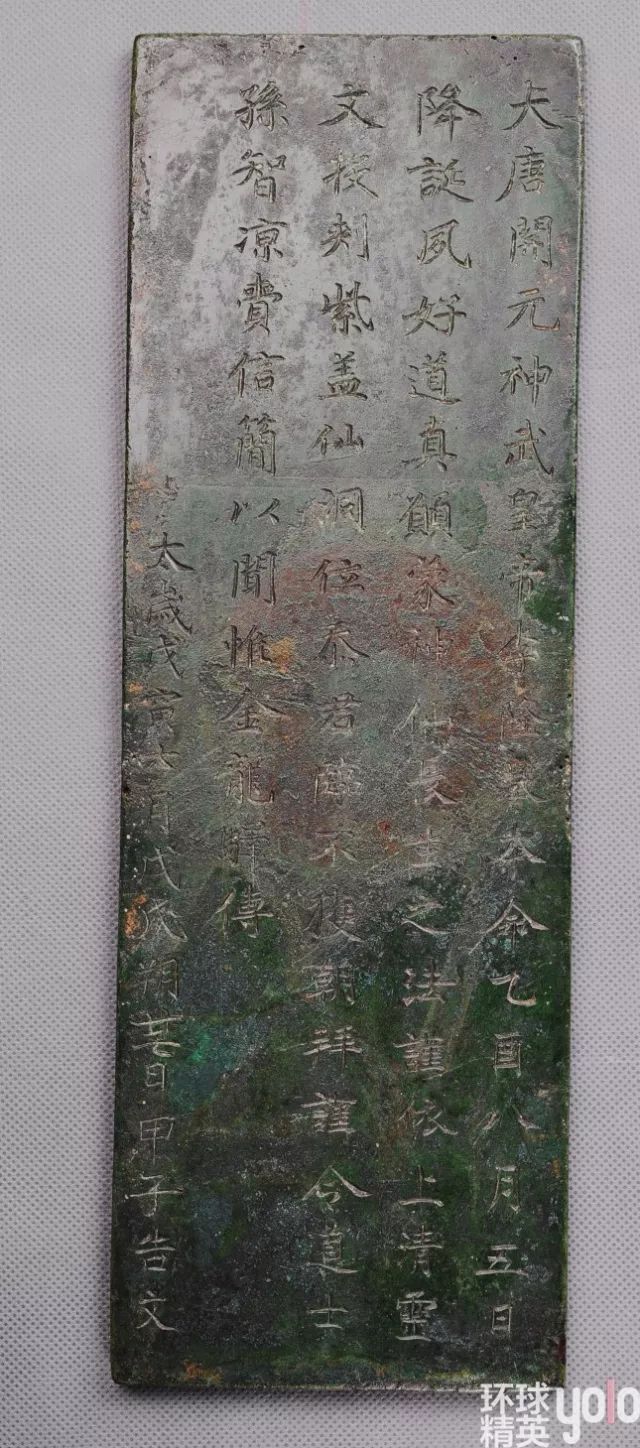 大唐開元神武皇帝李隆基本命乙酉八月五日
降誕夙好道真願蒙神仙長生之法謹依上清靈
文投刾紫盖仙洞位忝君臨不獲朝拜謹令道士
孫智凉賫信簡以聞惟金龍驛傳
太歲戊寅六月戊戌朔廿七日甲子告文
环球
精英
yolo